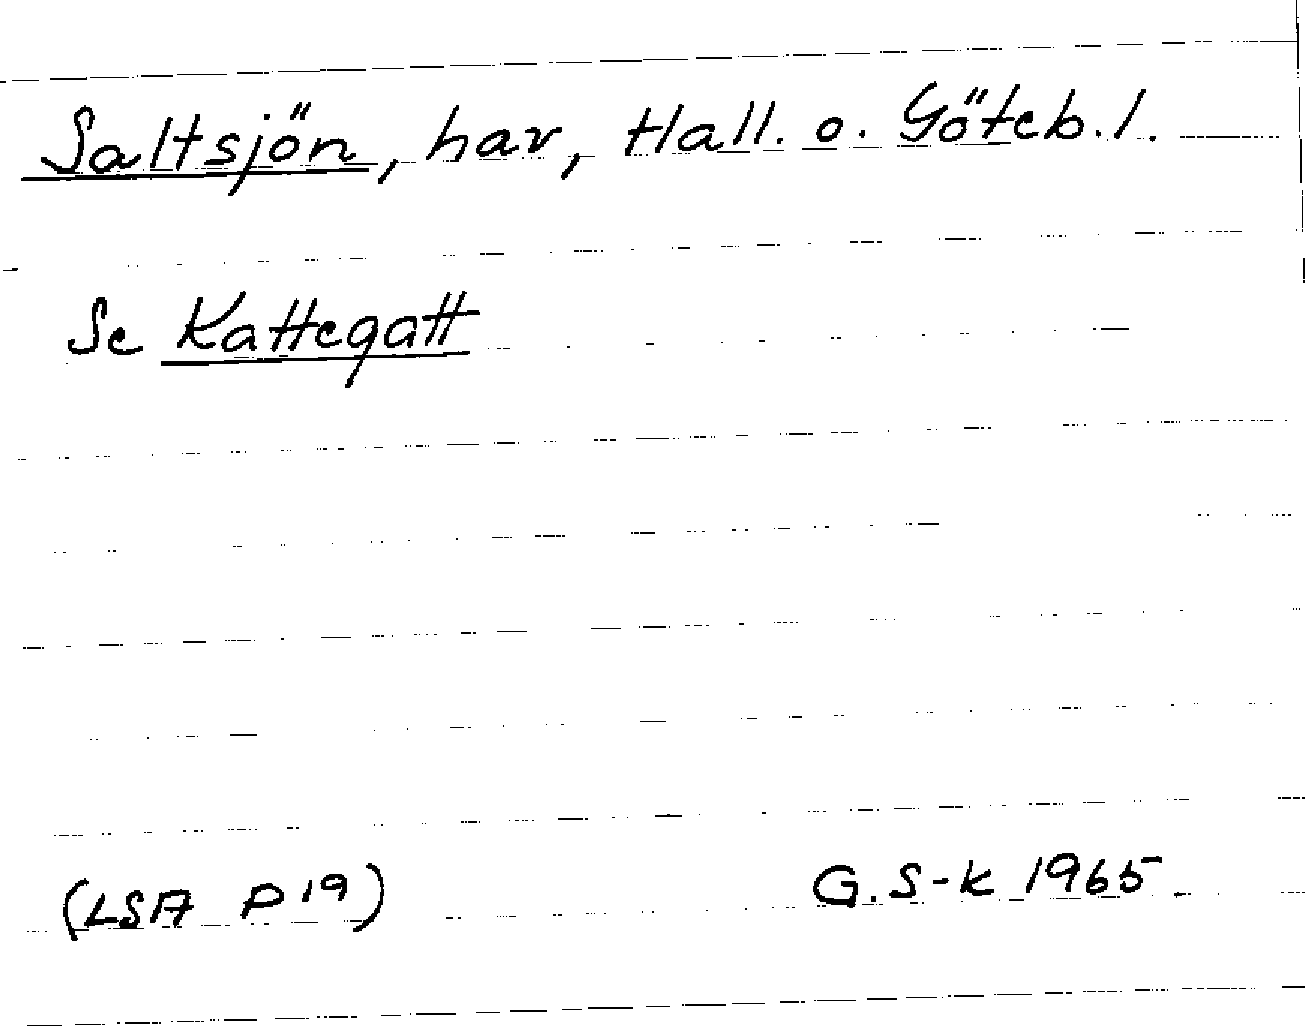 Saltsjön, hav, Hall. o. Göteb. l.
Se Kattegatt
(LSA P 19) G. S-k 1965